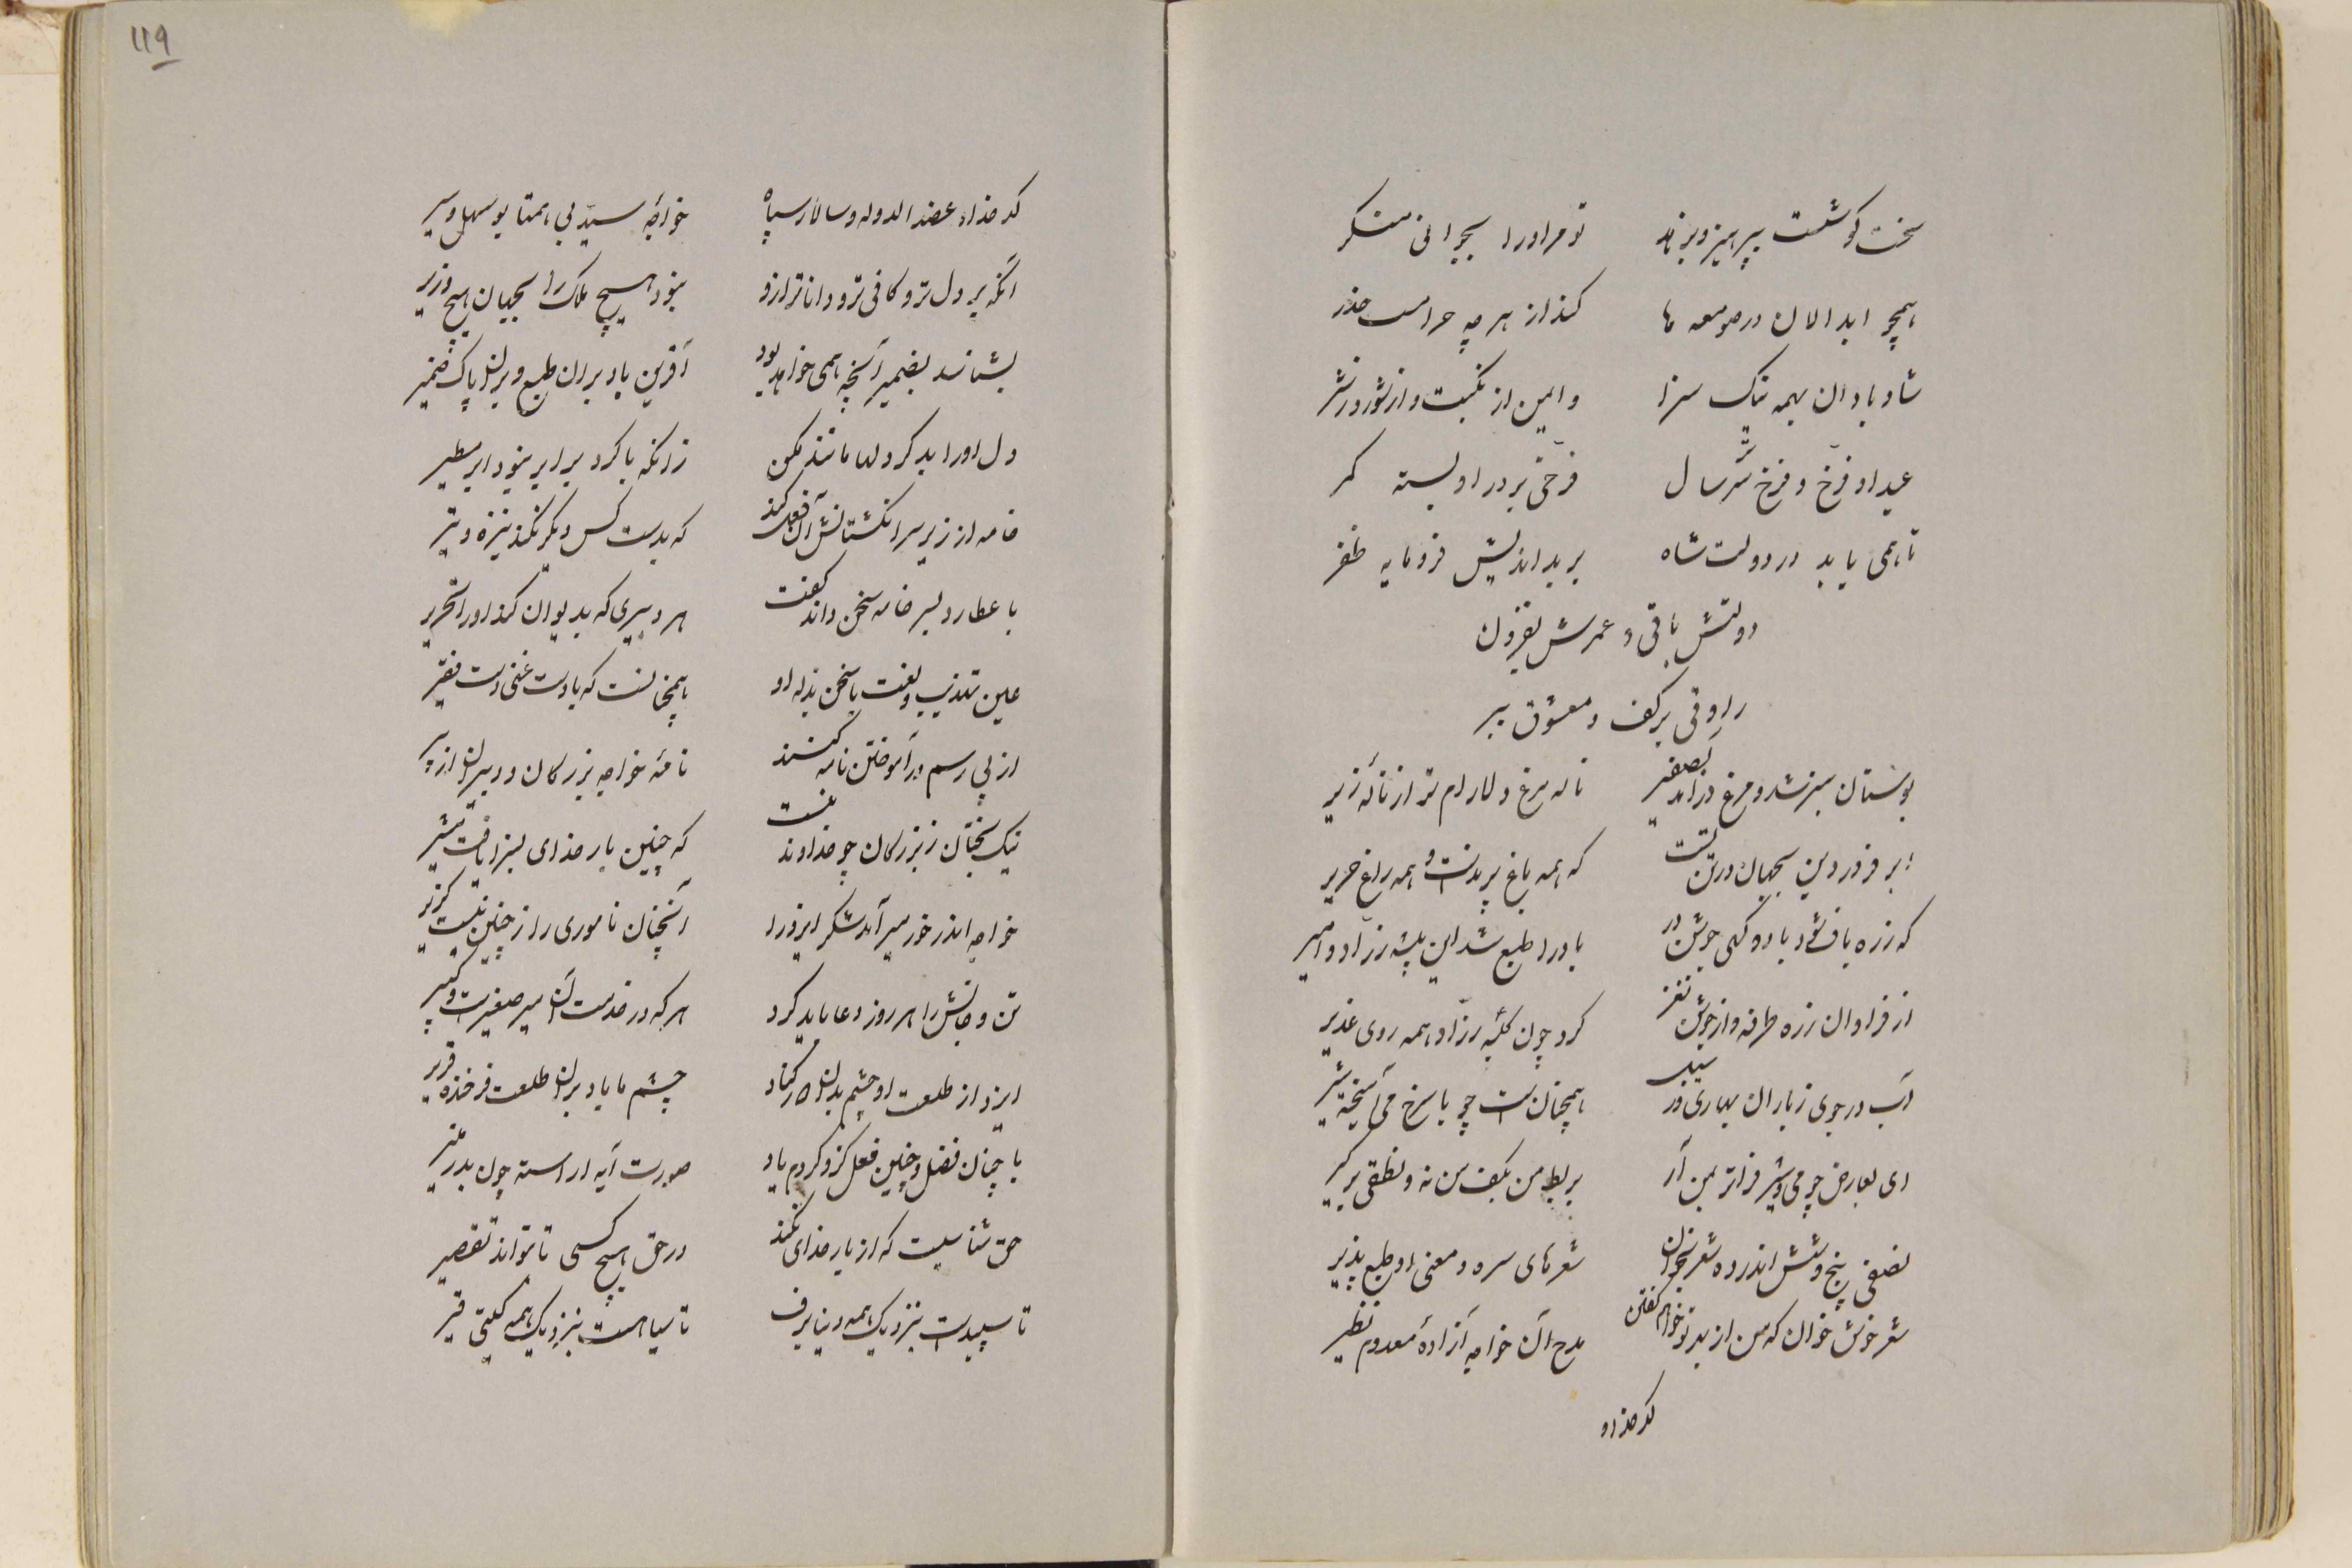 سخت کوشست بپرهیز و بزهد تو مر او را بجوانی منگر
همچو ابدالان در صومعه ها کند از هر چه حرامست حذر
شاد باد ان بهمه نیک سزا و ایمن از نکبت و از شور و ز شر
عید او فرخ و فرخ سر سال فرخی بر در او بسته کمر
تا همی یابد در دولت شاه بر بد اندیش فرومایه ظفر
دولتش باقی و عمرش بفزون
راوقی بر کف و معشوق ببر
بوستان سبز شد و مرغ در امد بصفیر ناله مرغ دلارام تر از نالهٔ زیر
ابر فروردین بجهان در تن که همه باغ پرندست و همه راغ حریر
که زره بافد باد و گهی جوشن در باد را طبع شد این پیشه زراد و امیر
از فراوان زره طرفه و از جوشن نغز کرد چون کلبه زرّاد همه روی غدیر
آب در جوی ز باران بهاری در همچنانست چو با سرخ می آمیخته شیر
ای بعارض چو می و شیر فراتر بمن آر بربط من بکف من نه و نطقی برگیر
نصفی پنج و شش اندر ده و شعری بخوان شعرهای سره و معنی او طبع پذیر
شعر خوش خوان که من از بهر تو خواهم گفتن مدح آن خواجه آزادهٔ معدوم نظیر
کدخداو
١١٩
کدخداء عضدالدوله و سالار سپاه خواجه سید بی همتا بوسهل دبیر
آنکه پر دل تر و کافی تر و داناتر ازو نبود هیچ ملک را بجهان هیچ وزیر
بشناسد بضمیر آنچه همی خواهد بود آفرین باد بران طبع و بران پاک ضمیر
دل او را بد کرد لها مانند مکن زانکه با کرد برابر نبود ابر مطیر
خامه از زیر سر انگشتانش آن فعل کند که بدست کس دیگر نکند نیزه و تیر
با عطارد بسر خامه سخن داند گفت هر دبیری که بدیوان کند او را تحریر
عین تهذیب و لغت با سخن بذله او همچنانست که با دست غنی دست فقیر
از پی رسم در آموختن نامه کنند نامهٔ خواجه بزرگان و دبیران از بر
نیک بختان ز بزرگان چو خداوند منست که چنین بار خدای بسزا یافت مشیر
خواجه اندر خور میر آمد شکر ایزد را آنچنان ناموری را ز چنین نیست گزیر
تن و جانش را هر روز دعا باید کرد هر که در خدمت آن میر صغیرست و کبیر
ایزد از طلعت او چشم بدان دور کناد چشم ما باد بران طلعت فرخنده قریر
با چنان فضل و چنین فعل کزو کردم یاد صورت آید آراسته چون بدر منیر
حق شناسیست که از بار خدای نکند در حق هیچ کسی تا بتواند تقصیر
تا سپیدست بنزدیک همه دنیا برف تا سیاهست بنزدیک همه گیتی قیر